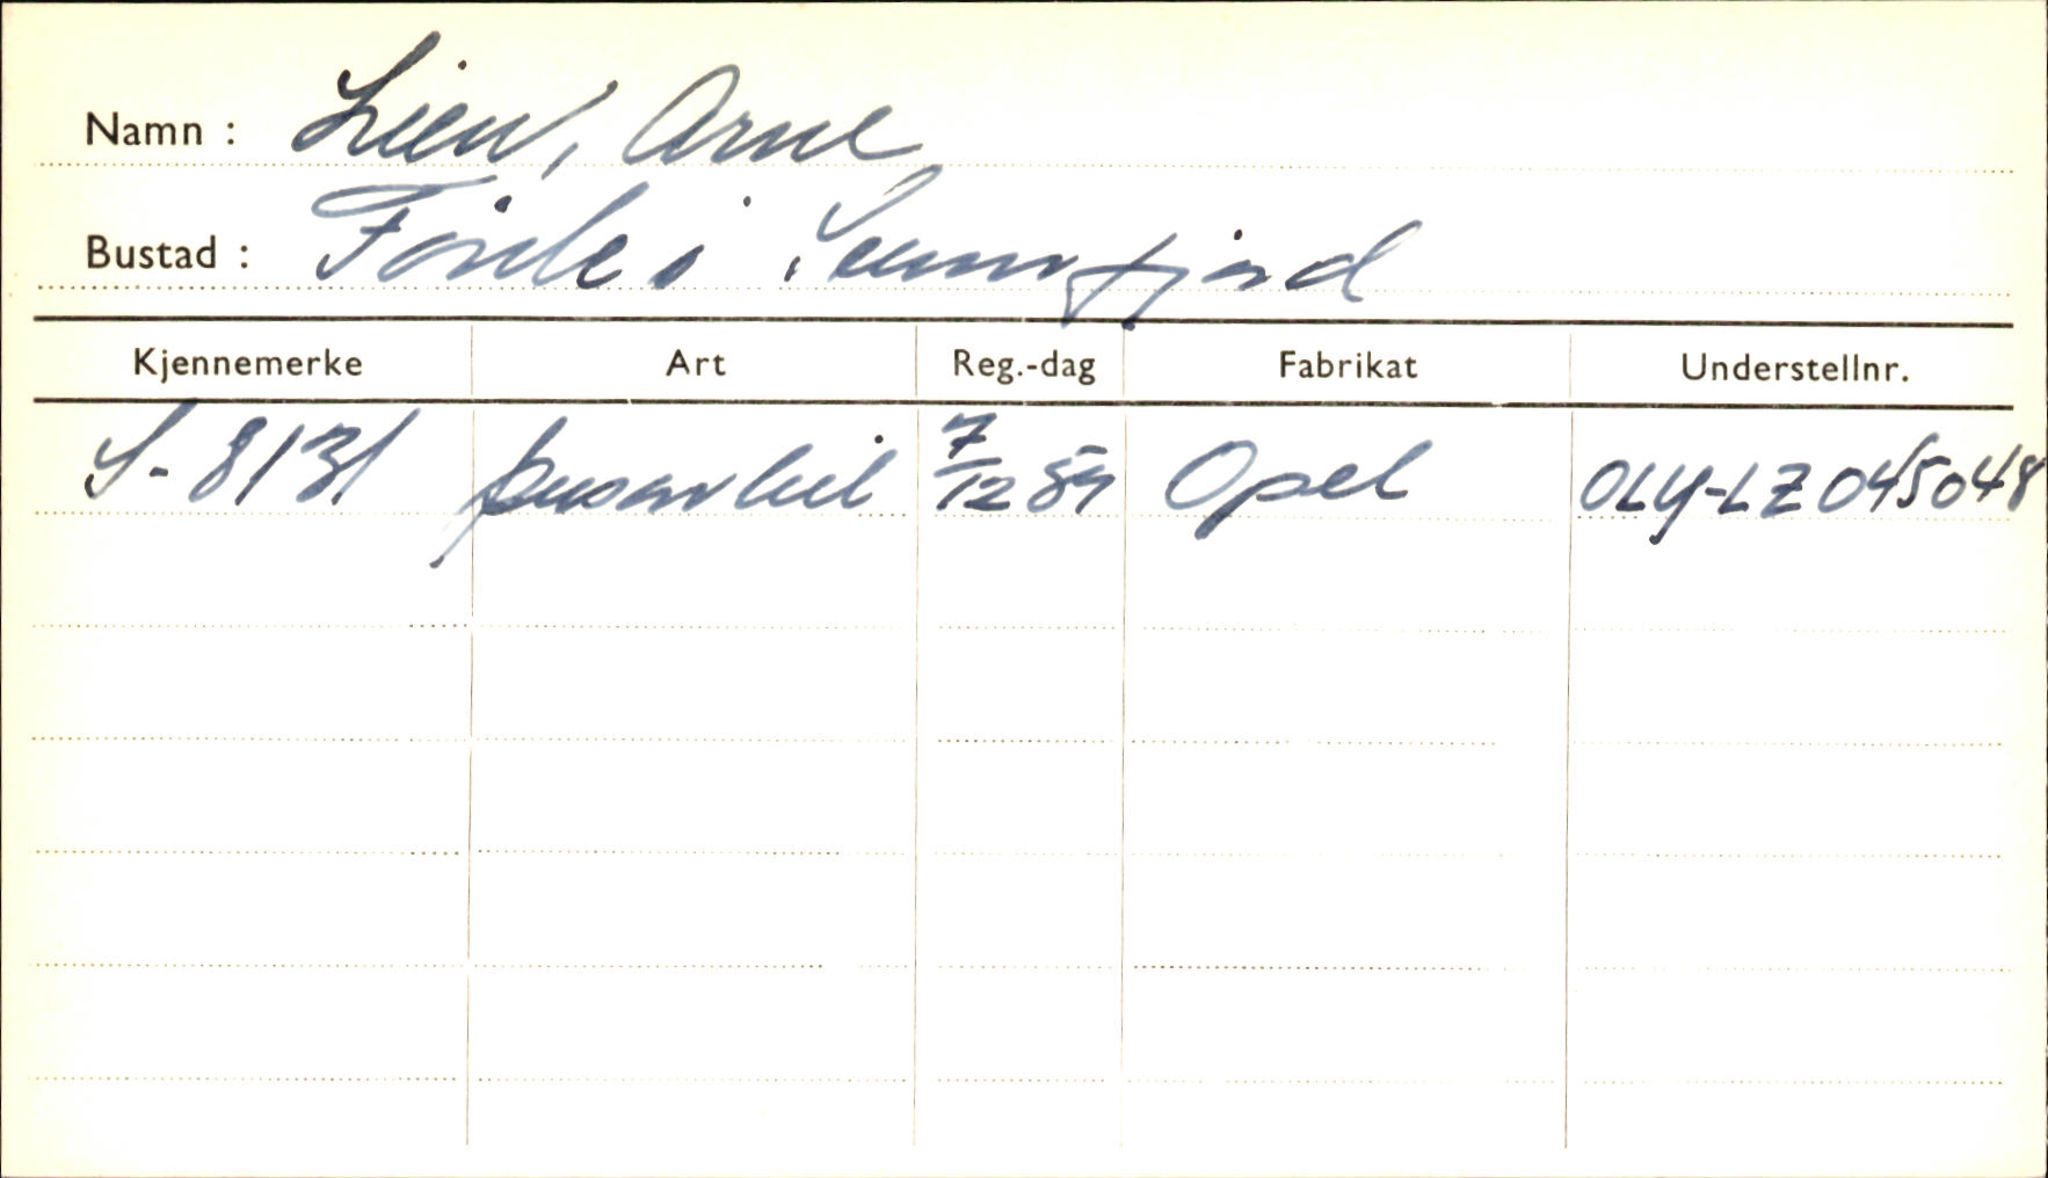 Namn : Lien, Arne
Bustad : Förde i Sunnfjord
Kjennemerke Art Reg.-dag Fabrikat Understellnr.
S-8131 personbil 7/12 59 Opel OLY-LZ045048